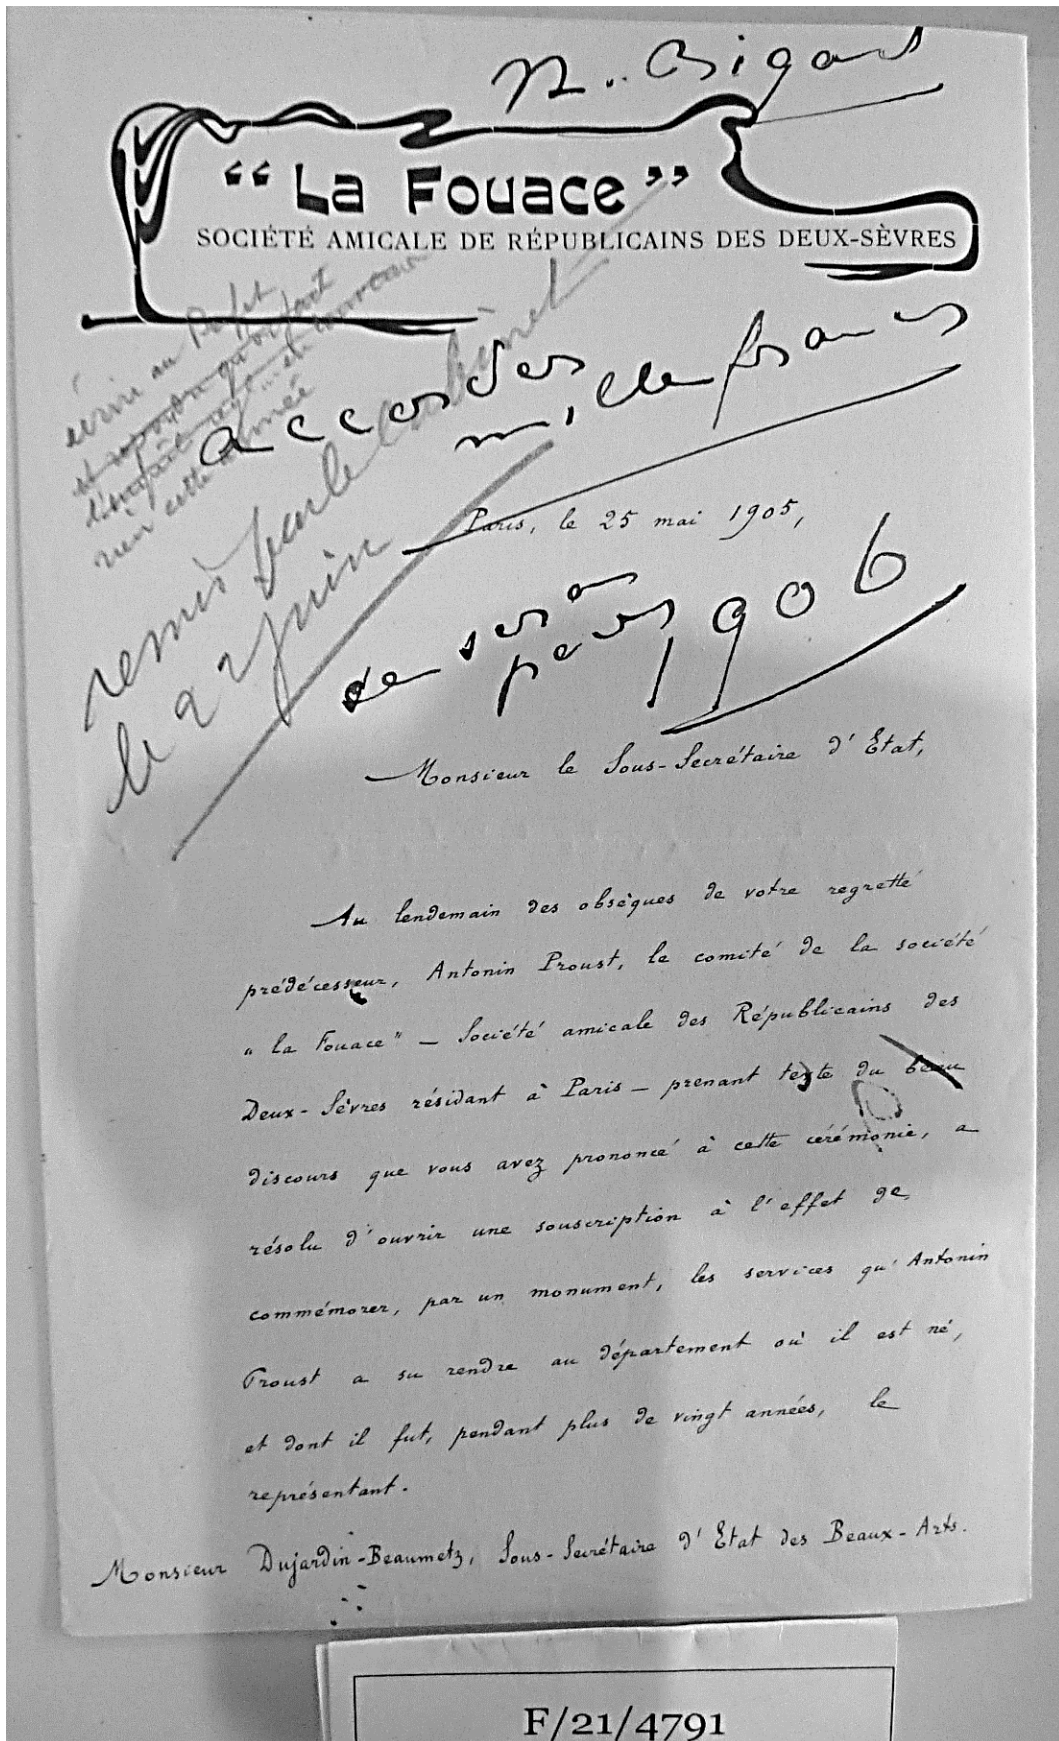 M. Bigard
“ La Fouace ”
SOCIÉTÉ AMICALE DE RÉPUBLICAINS DES DEUX-SÈVRES
écrire au Préfet
et
rien cette année
accorder
mille francs
remis par le cabinet
le 2 juin
Paris, le 25 mai 1905,
1906
Monsieur le Sous-Secrétaire d'Etat,
Au lendemain des obsèques de votre regretté
prédécesseur, Antonin Proust, le comité de la société
" la Fouace " – Société amicale des Républicains des
Deux-Sèvres résidant à Paris – prenant texte du beau
discours que vous avez prononcé à cette cérémonie, a
résolu d'ouvrir une souscription à l'effet de
commémorer, par un monument, les services qu'Antonin
Proust a su rendre au département où il est né,
et dont il fut, pendant plus de vingt années, le
représentant.
Monsieur Dujardin-Beaumetz, Sous-Secrétaire d'Etat des Beaux-Arts.
F/21/4791